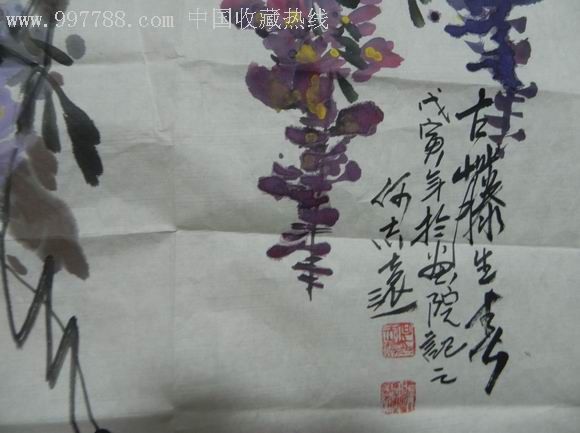 www.997788.com 中国收藏热线
古藤生春
戊寅年於画院記之
何志遠